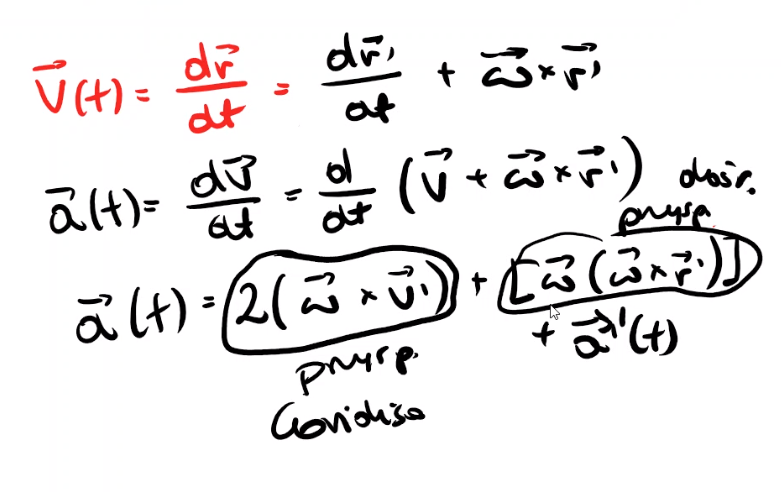 v⃗(t) = dr⃗/dt = dr⃗'/dt + ω⃗ × r⃗'
a⃗(t) = dv⃗/dt = d/dt (v⃗ + ω⃗ × r⃗') dośr.
przysp.
a⃗(t) = 2(ω⃗ × v⃗') + [ω⃗(ω⃗ × r⃗')]
+ a⃗'(t)
przysp.